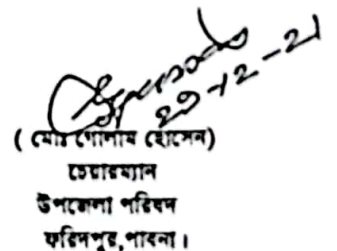 29-12-21
( মোঃ গোলাম হোসেন)
চেয়ারম্যান
উপজেলা পরিষদ
ফরিদপুর,পাবনা।